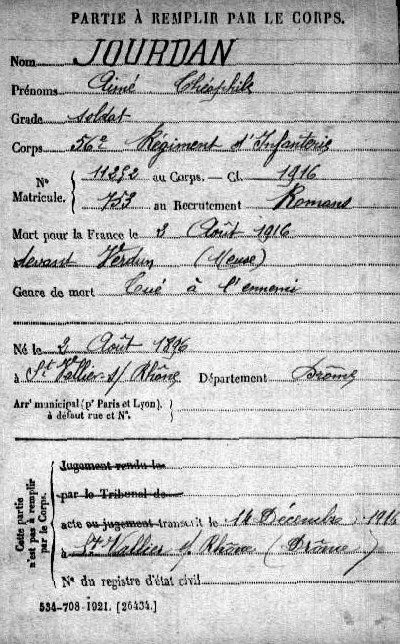 PARTIE À REMPLIR PAR LE CORPS.
Nom JOURDAN
Prénoms Aimé Théophile
Grade soldat
Corps 56e Régiment d'Infanterie
N° Matricule. { 11252 au Corps. — Cl. 1916
753 au Recrutement Romans
Mort pour la France le 2 Août 1916
devant Verdun (Meuse)
Genre de mort Tué à l'ennemi
Né le 2 Août 1896
à St Vallier s/ Rhône Département Drôme
Arrt municipal (pr Paris et Lyon), à défaut rue et N°. }
Cette partie n'est pas à remplir par le Corps.
Jugement rendu le
par le Tribunal de
acte ou jugement transcrit le 14 Décembre 1916
à St Vallier s/ Rhône (Drôme)
N° du registre d'état civil
534-708-1921. [26434.]